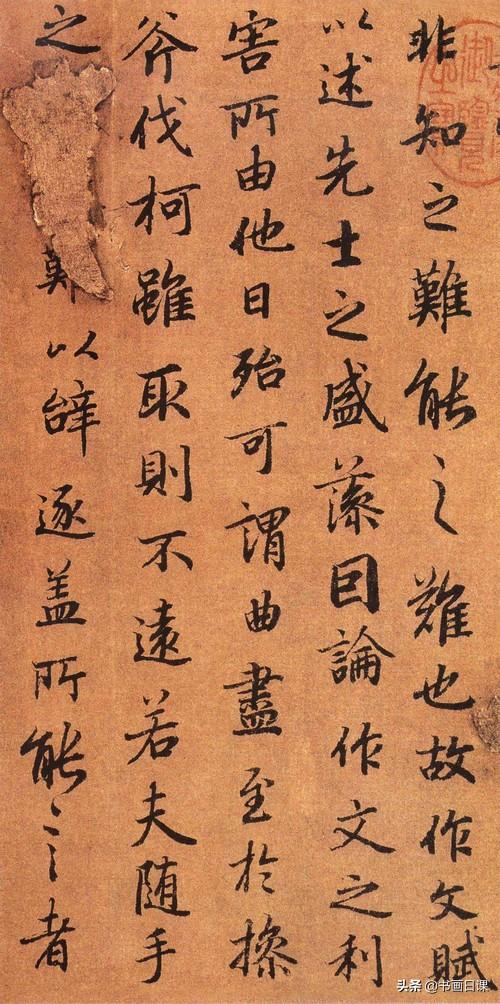 非知之難能之難也故作文賦
以述先士之盛藻因論作文之利
害所由他日殆可謂曲盡至於操
斧伐柯雖取則不遠若夫随手
之 以辝逐盖所能之者
头条 @书画日课